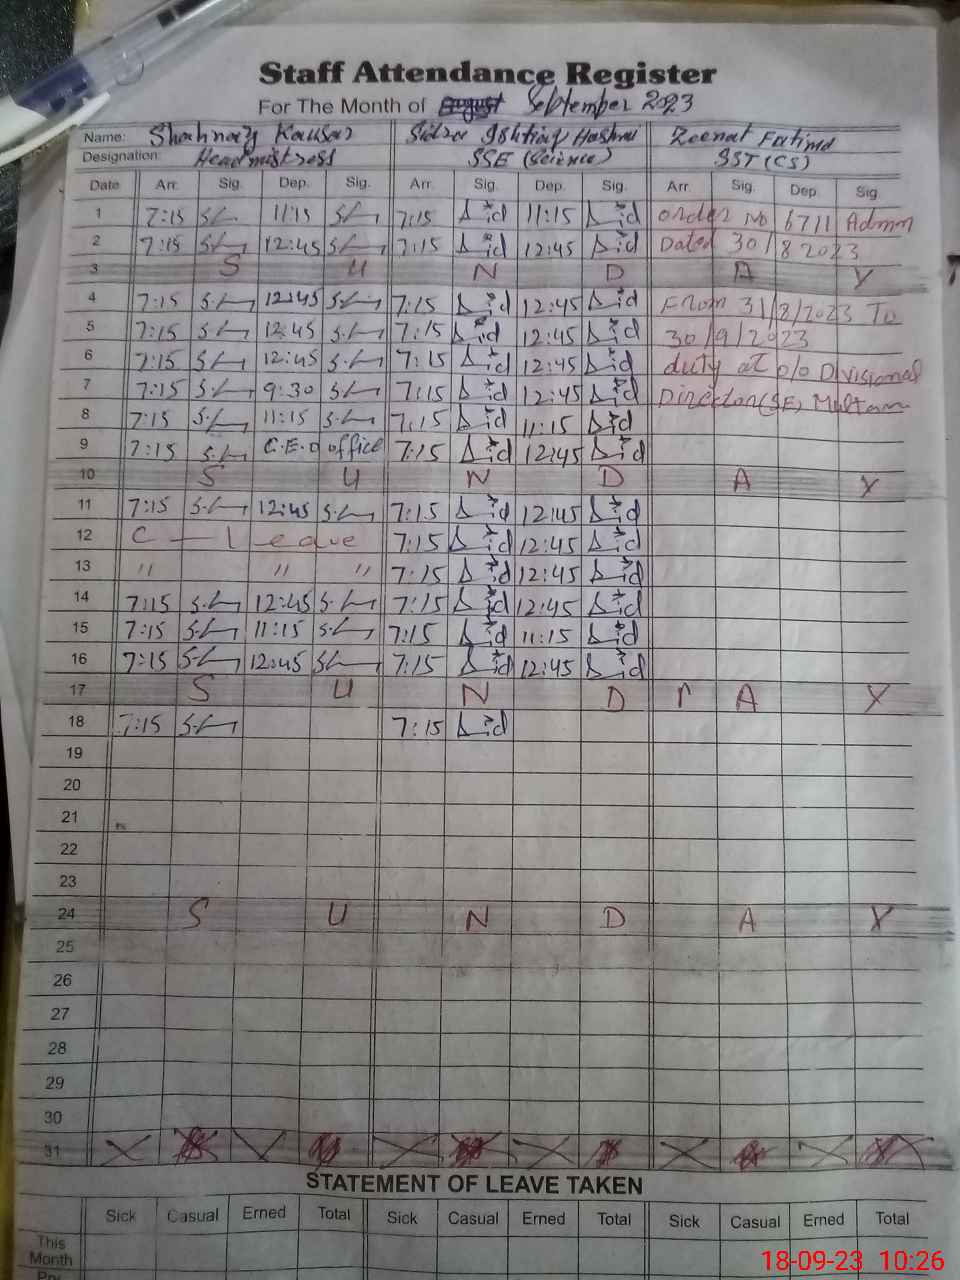 Staff Attendance Register
For The Month of September 2023
Name: Shahnaz Kausar Sidra Ishtiaq Hashmi Zeenat Fatima
Designation: Headmistress SSE (Science) SST (CS)
Date Arr. Sig. Dep. Sig. Arr. Sig. Dep. Sig. Arr. Sig. Dep. Sig.
1 7:15 11:15 7:15 11:15 Order No 6711 Admn
2 7:15 12:45 7:15 12:45 Dated 30/8 2023
3 S U N D A Y
4 7:15 12:45 7:15 12:45 From 31/8/2023 To
5 7:15 12:45 7:15 12:45 30/9/2023
6 7:15 12:45 7:15 12:45 duty at o/o Divisional
7 7:15 9:30 7:15 12:45 Director (SE) Multan
8 7:15 11:15 7:15 11:15
9 7:15 C.E.O office 7:15 12:45
10 S U N D A Y
11 7:15 12:45 7:15 12:45
12 C - leave 7:15 12:45
13 " " " 7:15 12:45
14 7:15 12:45 7:15 12:45
15 7:15 11:15 7:15 11:15
16 7:15 12:45 7:15 12:45
17 S U N D A Y
18 7:15 7:15
19
20
21
22
23
24 S U N D A Y
25
26
27
28
29
30
31
STATEMENT OF LEAVE TAKEN
Sick Casual Erned Total Sick Casual Erned Total Sick Casual Erned Total
This
Month
18-09-23 10:26